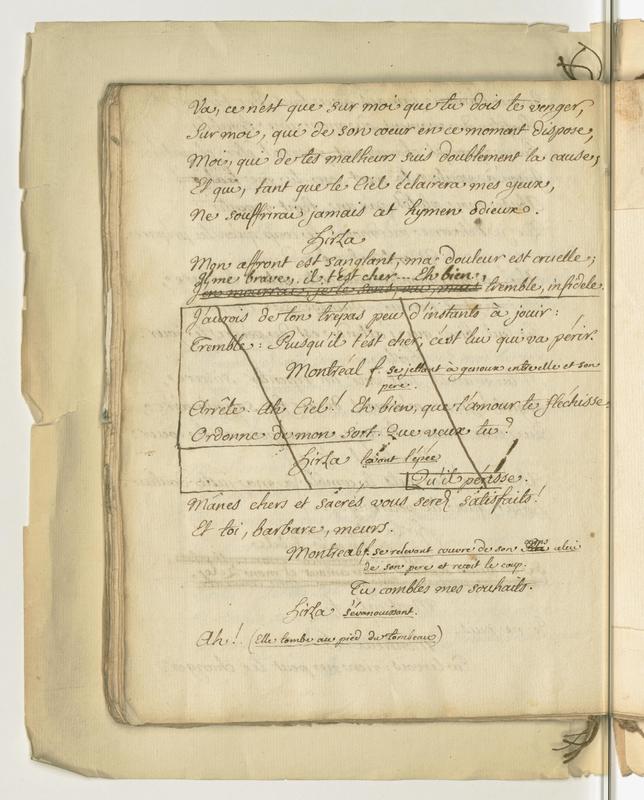 Va, ce n'est que sur moi que tu dois te venger,
Sur moi, qui de son coeur en ce moment dispose,
Moi, qui de tes malheurs suis doublement la cause,
Et qui, tant que le Ciel éclairera mes yeux,
Ne souffrirai jamais cet hymen odieux.
Hirza
Mon affront est sanglant, ma douleur est cruelle;
Il me brave, il t'est cher... Eh bien,
J'en mourrai, je le sens, tremble, infidele
J'aurois de ton trépas peu d'instants à jouir:
Tremble: Puisqu'il t'est cher, c'est lui qui va périr.
Montréal f. se jettant à genoux entre elle et son
pere.
Arrête. Ah Ciel! Eh bien, que l'amour te fléchisse.
Ordonne de mon sort. Que veux tu?
Hirza levant l'épée
Qu'il périsse.
Mânes chers et sacrés vous serez satisfaits!
Et toi, barbare, meurs.
Montreal f. se relevant couvre de son corps celui
de son pere et reçoit le coup.
Tu combles mes souhaits.
Hirza s'évanouissant.
Ah! (Elle tombe au pied du tombeau)